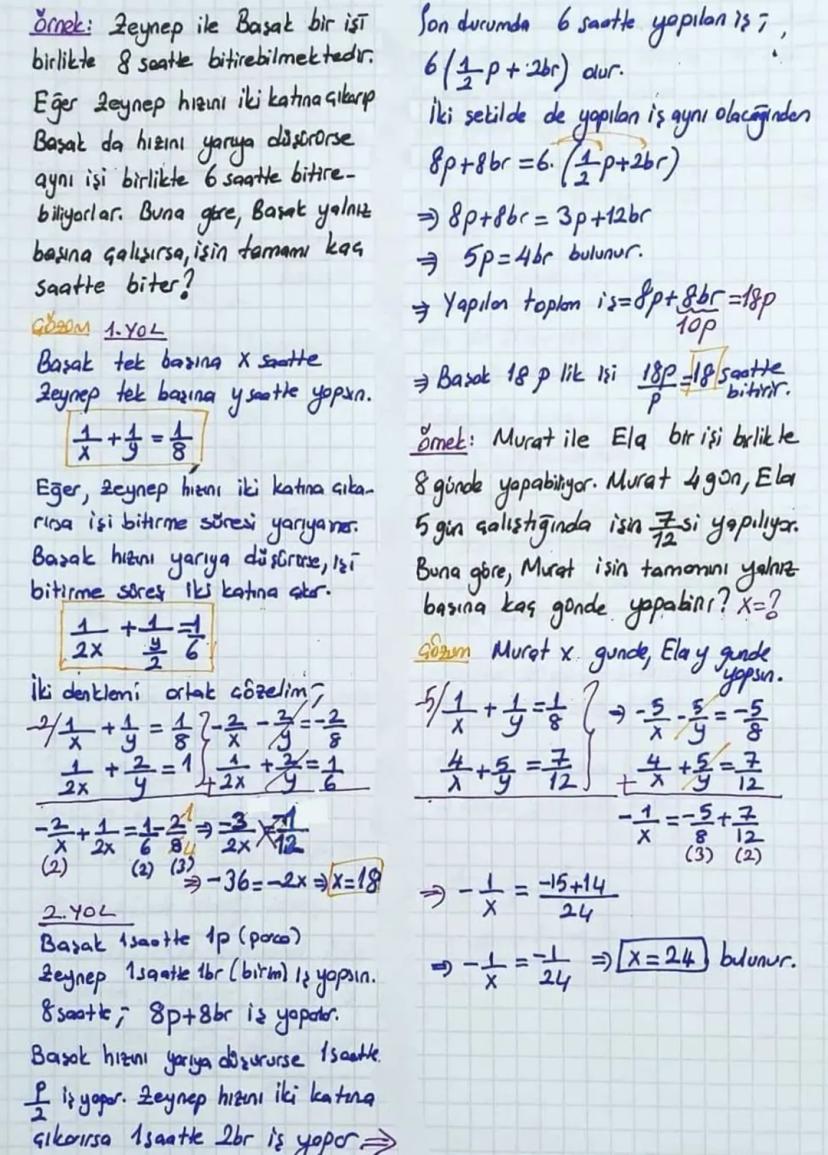 Örnek: Zeynep ile Başak bir işi
birlikte 8 saatte bitirebilmektedir.
Eğer Zeynep hızını iki katına çıkarıp
Başak da hızını yarıya düşürürse
aynı işi birlikte 6 saatte bitire-
biliyorlar. Buna göre, Başak yalnız
başına çalışırsa, işin tamamı kaç
saatte biter?
ÇÖZÜM 1.YOL
Başak tek başına x saatte
Zeynep tek başına y saatte yapsın.
1/x + 1/y = 1/8
Eğer, Zeynep hızını iki katına çıka-
rırsa işi bitirme süresi yarıya iner.
Başak hızını yarıya düşürürse, işi
bitirme süresi iki katına çıkar.
1/2x + 1/(y/2) = 1/6
İki denklemi ortak çözelim;
-2/ 1/x + 1/y = 1/8 } -2/x - 2/y = -2/8
1/2x + 2/y = 1 + 1/2x + 2/y = 1/6
-2/x + 1/2x = 1/6 - 2/8 ⇒ -3/2x = -1/12
(2) (2) (3)
⇒ -36 = -2x ⇒ x = 18
2.YOL
Başak 1 saatte 1p (parça)
Zeynep 1 saatte 1br (birim) iş yapsın.
8 saatte; 8p+8br iş yaparlar.
Başak hızını yarıya düşürürse 1 saatte
p/2 iş yapar. Zeynep hızını iki katına
çıkarırsa 1 saatte 2br iş yapar ⇒
Son durumda 6 saatte yapılan iş;
6(1/2 p + 2br) olur.
İki şekilde de yapılan iş aynı olacağından
8p+8br = 6.(1/2 p+2br)
⇒ 8p+8br = 3p+12br
⇒ 5p=4br bulunur.
⇒ Yapılan toplam iş=8p+8br=18p
10p
⇒ Başak 18 p lik işi 18p/p = 18 saatte
bitirir.
Örnek: Murat ile Ela bir işi birlikte
8 günde yapabiliyor. Murat 4 gün, Ela
5 gün çalıştığında işin 7/12 si yapılıyor.
Buna göre, Murat işin tamamını yalnız
başına kaç günde yapabilir? x=?
Çözüm Murat x günde, Ela y günde
yapsın.
-5/ 1/x + 1/y = 1/8 } ⇒ -5/x - 5/y = -5/8
4/x + 5/y = 7/12 + 4/x + 5/y = 7/12
-1/x = -5/8 + 7/12
(3) (2)
⇒ -1/x = -15+14/24
⇒ -1/x = -1/24 ⇒ x = 24 bulunur.